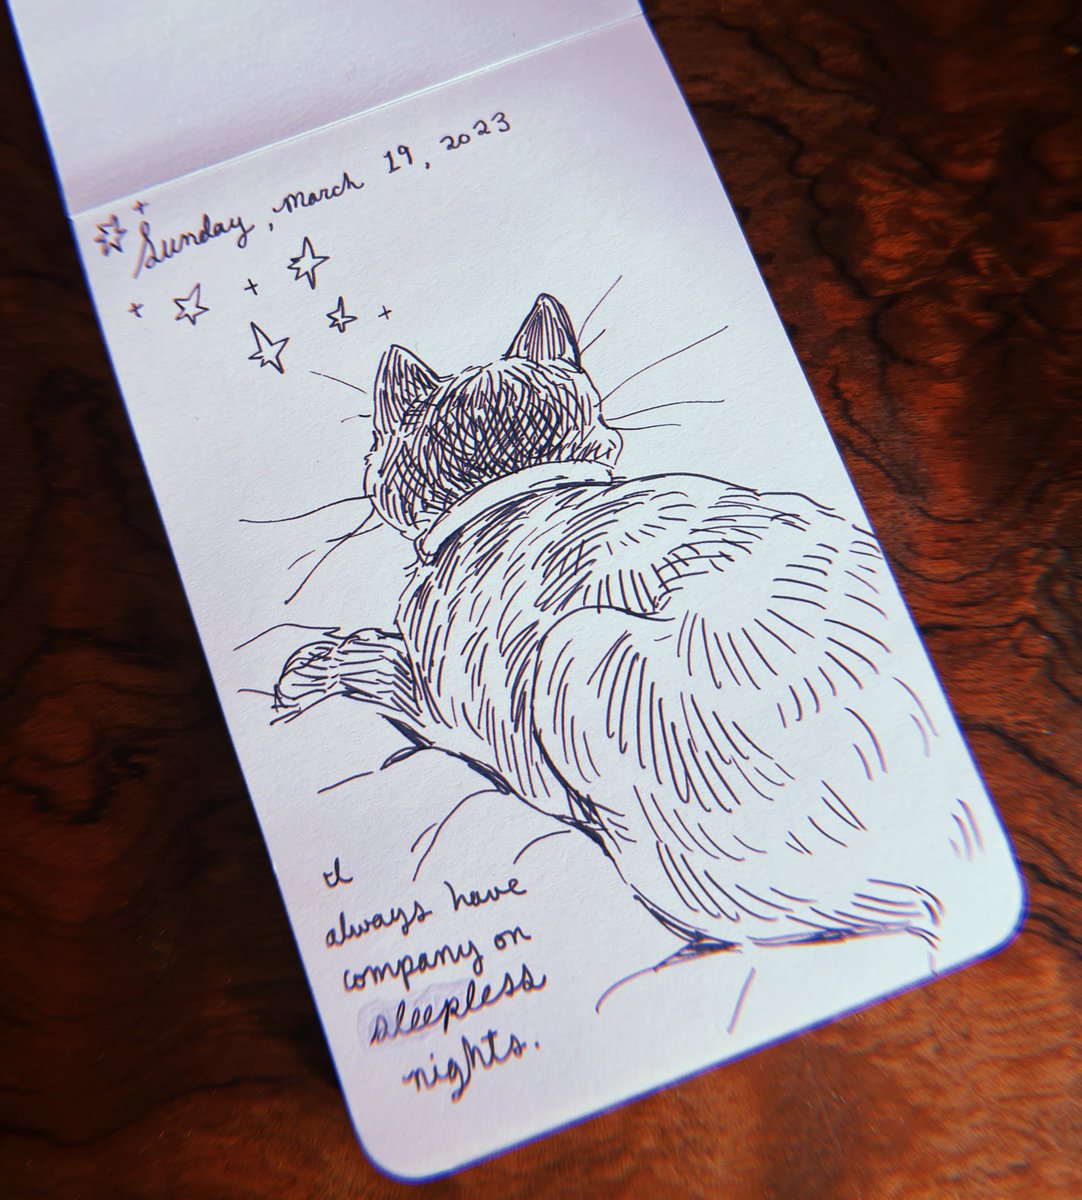 Sunday, March 19, 2023
I
always have
company on
sleepless
nights.